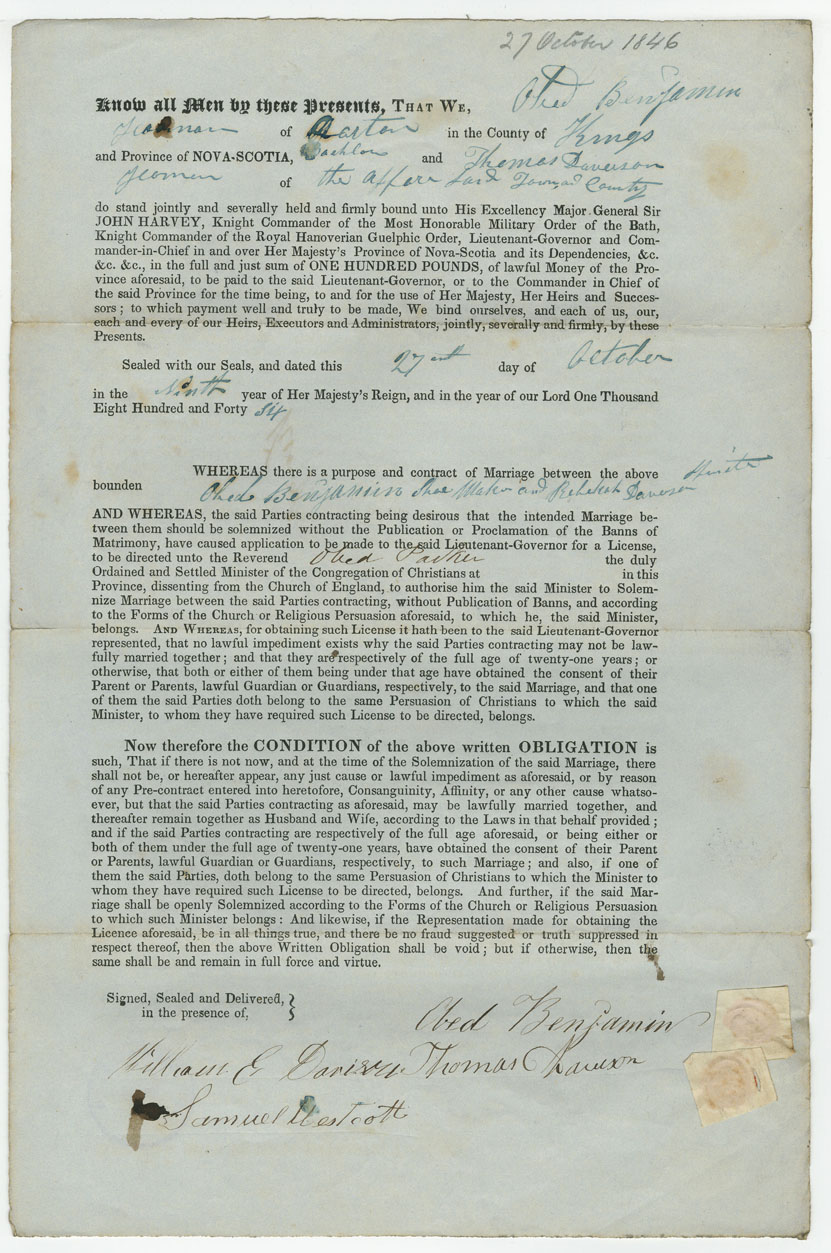 27 October 1846
Know all Men by these Presents, THAT WE, Obed Benjamin
of Aarton in the County of Kings
and Province of NOVA-SCOTIA, Bachlor and Thomas Daverson
Yeoman of the Affore Said Town and County
do stand jointly and severally held and firmly bound unto His Excellency Major General Sir
JOHN HARVEY, Knight Commander of the Most Honorable Military Order of the Bath,
Knight Commander of the Royal Hanoverian Guelphic Order, Lieutenant-Governor and Com-
mander-in-Chief in and over Her Majesty's Province of Nova-Scotia and its Dependencies, &c.
&c. &c., in the full and just sum of ONE HUNDRED POUNDS, of lawful Money of the Pro-
vince aforesaid, to be paid to the said Lieutenant-Governor, or to the Commander in Chief of
the said Province for the time being, to and for the use of Her Majesty, Her Heirs and Succes-
sors ; to which payment well and truly to be made, We bind ourselves, and each of us, our,
each and every of our Heirs, Executors and Administrators, jointly, severally and firmly, by these
Presents.
Sealed with our Seals, and dated this 27 day of October
in the Ninth year of Her Majesty's Reign, and in the year of our Lord One Thousand
Eight Hundred and Forty Six
WHEREAS there is a purpose and contract of Marriage between the above
bounden Obed Benjamin Shoe Maker and Rebekah Daverson
AND WHEREAS, the said Parties contracting being desirous that the intended Marriage be-
tween them should be solemnized without the Publication or Proclamation of the Banns of
Matrimony, have caused application to be made to the said Lieutenant-Governor for a License,
to be directed unto the Reverend Obed Parker the duly
Ordained and Settled Minister of the Congregation of Christians at in this
Province, dissenting from the Church of England, to authorise him the said Minister to Solem-
nize Marriage between the said Parties contracting, without Publication of Banns, and according
to the Forms of the Church or Religious Persuasion aforesaid, to which he, the said Minister,
belongs. AND WHEREAS, for obtaining such License it hath been to the said Lieutenant-Governor
represented, that no lawful impediment exists why the said Parties contracting may not be law-
fully married together ; and that they are respectively of the full age of twenty-one years ; or
otherwise, that both or either of them being under that age have obtained the consent of their
Parent or Parents, lawful Guardian or Guardians, respectively, to the said Marriage, and that one
of them the said Parties doth belong to the same Persuasion of Christians to which the said
Minister, to whom they have required such License to be directed, belongs.
Now therefore the CONDITION of the above written OBLIGATION is
such, That if there is not now, and at the time of the Solemnization of the said Marriage, there
shall not be, or hereafter appear, any just cause or lawful impediment as aforesaid, or by reason
of any Pre-contract entered into heretofore, Consanguinity, Affinity, or any other cause whatso-
ever, but that the said Parties contracting as aforesaid, may be lawfully married together, and
thereafter remain together as Husband and Wife, according to the Laws in that behalf provided ;
and if the said Parties contracting are respectively of the full age aforesaid, or being either or
both of them under the full age of twenty-one years, have obtained the consent of their Parent
or Parents, lawful Guardian or Guardians, respectively, to such Marriage ; and also, if one of
them the said Parties, doth belong to the same Persuasion of Christians to which the Minister to
whom they have required such License to be directed, belongs. And further, if the said Mar-
riage shall be openly Solemnized according to the Forms of the Church or Religious Persuasion
to which such Minister belongs : And likewise, if the Representation made for obtaining the
Licence aforesaid, be in all things true, and there be no fraud suggested or truth suppressed in
respect thereof, then the above Written Obligation shall be void ; but if otherwise, then the
same shall be and remain in full force and virtue.
Signed, Sealed and Delivered,
in the presence of,
Obed Benjamin
William E Thomas
Samuel Westcott